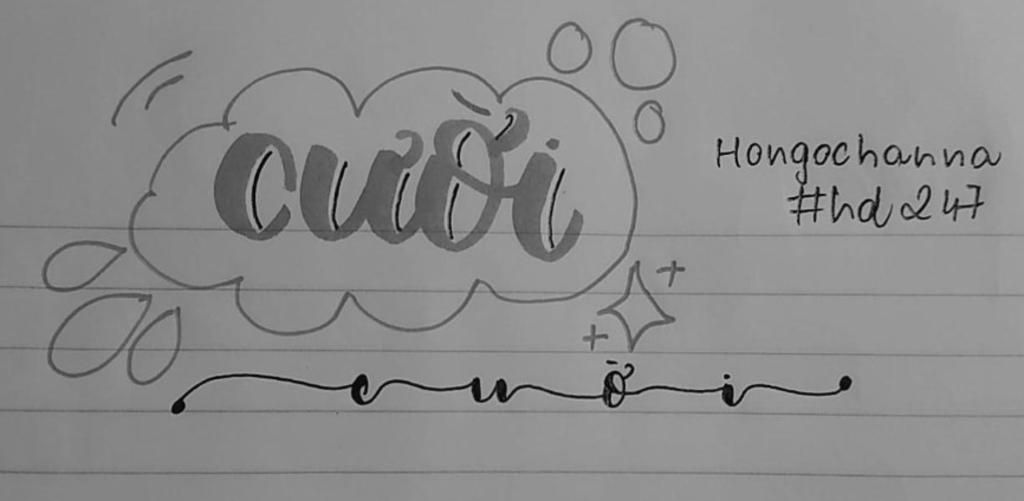 cười
Hongochanna
#hd247
cười